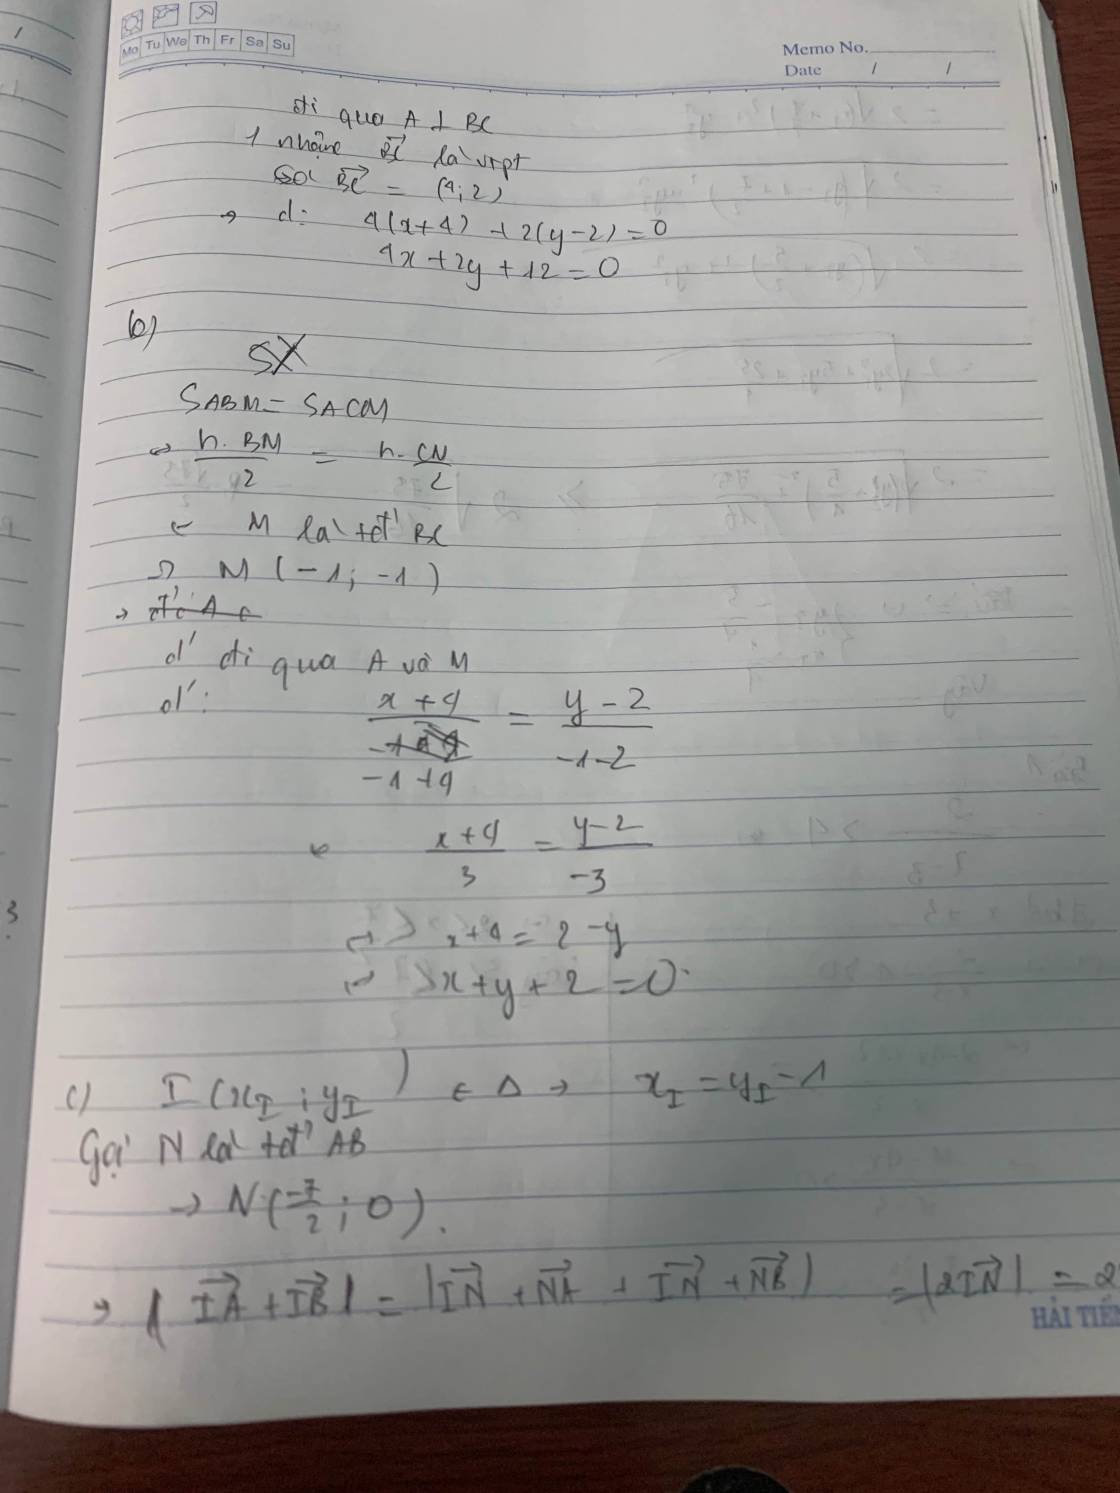 Mo Tu We Th Fr Sa Su
Memo No.
Date / /
đi qua A ⊥ BC
1 nhận BC→ là vtpt
Có BC→ = (4; 2)
→ d: 4(x+4) + 2(y-2) = 0
4x + 2y + 12 = 0
b)
SABM = SACM
⇔ h. BM / 2 = h. CM / 2
M là tđ' BC
⇒ M (-1; -1)
d' đi qua A và M
d': x + 4 / -1 + 4 = y - 2 / -1 - 2
x + 4 / 3 = y - 2 / -3
x + 4 = 2 - y
x + y + 2 = 0
c) I (xI ; yI) ∈ Δ → xI = yI - 1
Gọi N là tđ' AB
→ N (-7/2 ; 0).
→ | IA→ + IB→ | = | IN→ + NA→ + IN→ + NB→ | = | 2IN→ | = 2
HẢI TIẾN
3